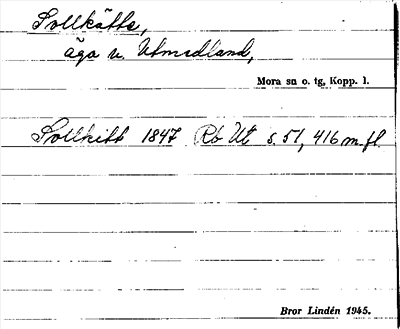 Sollkätts,
äga v. Utmedland,
Mora sn o. tg, Kopp. l.
Sollkitt 1847 Rb Ut s. 51, 416 m. fl.
Bror Lindén 1945.